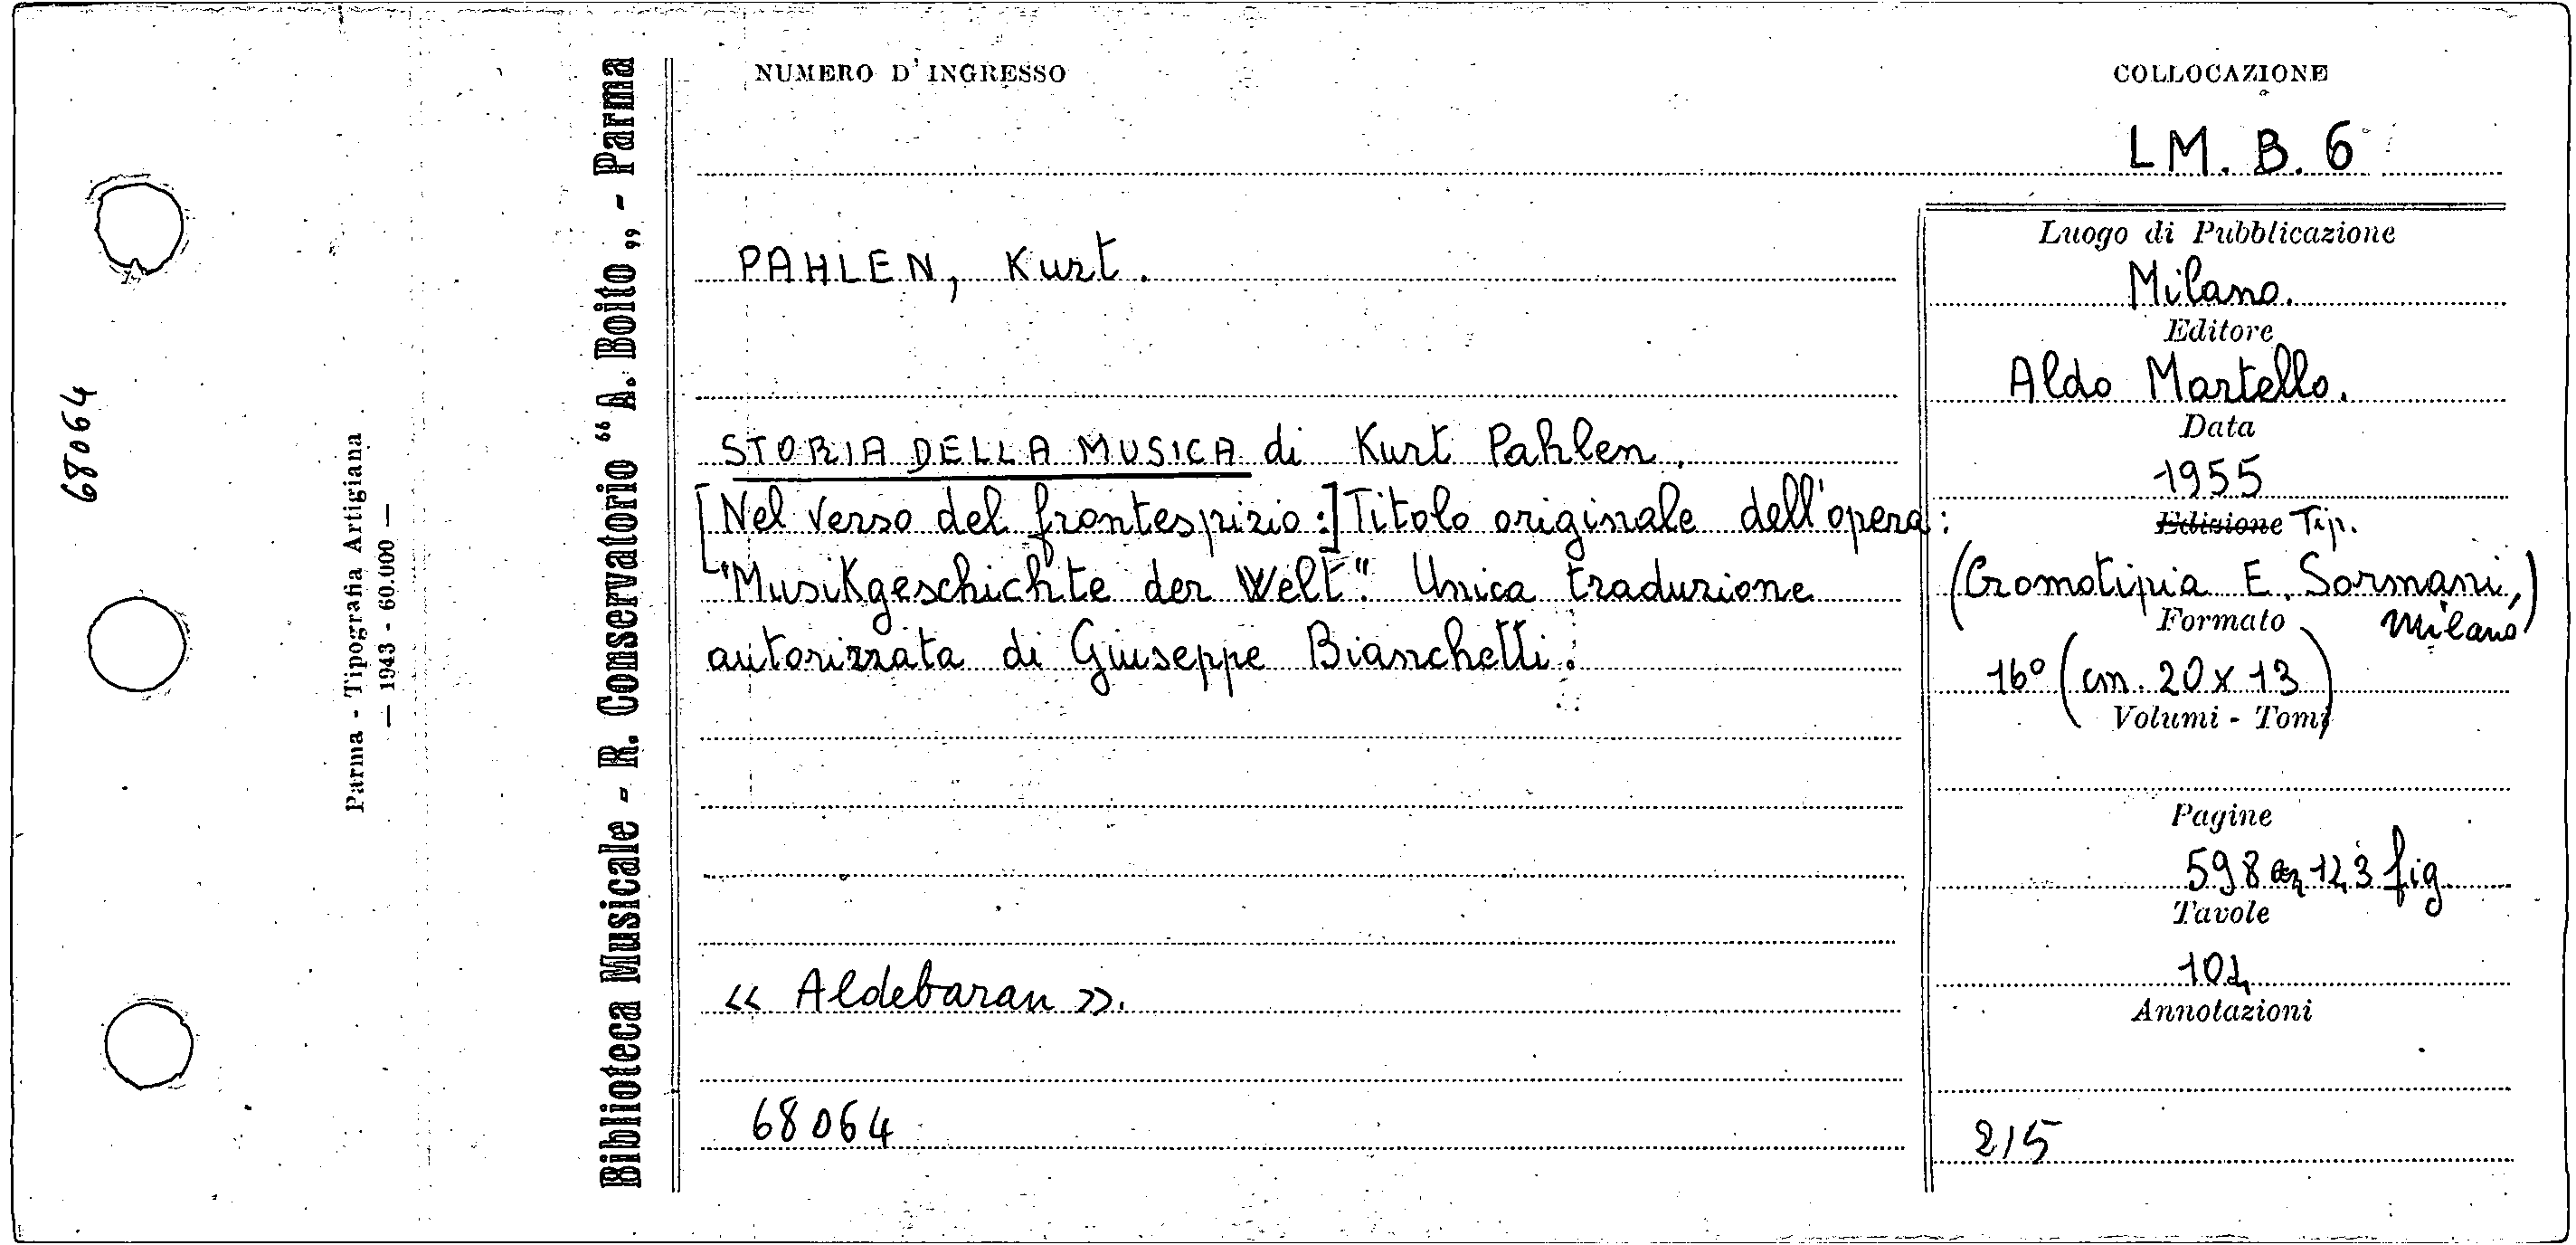 NUMERO D'INGRESSO
COLLOCAZIONE
LM. B. 6
PAHLEN, Kurt.
STORIA DELLA MUSICA di Kurt Pahlen.
[Nel verso del frontespizio:] Titolo originale dell'opera:
"Musikgeschichte der Welt". Unica traduzione
autorizzata di Giuseppe Bianchetti.
« Aldebaran ».
68064
Luogo di Pubblicazione
Milano.
Editore
Aldo Martello.
Data
1955
Edizione Tip.
(Cromotipia E. Sormani,
Milano)
Formato
16° (cm. 20 x 13)
Volumi - Tomi
Pagine
598 123 fig
Tavole
Annotazioni
215
Biblioteca Musicale - R. Conservatorio "A. Boito „ - Parma
Parma - Tipografia Artigiana
— 1943 - 60.000 —
68064